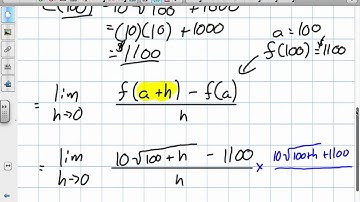 = (10)(10) + 1000
= $1100
a = 100
f(100) = $1100
= lim h→0 f(a+h) - f(a) / h
= lim h→0 10√100+h - 1100 / h × 10√100+h + 1100